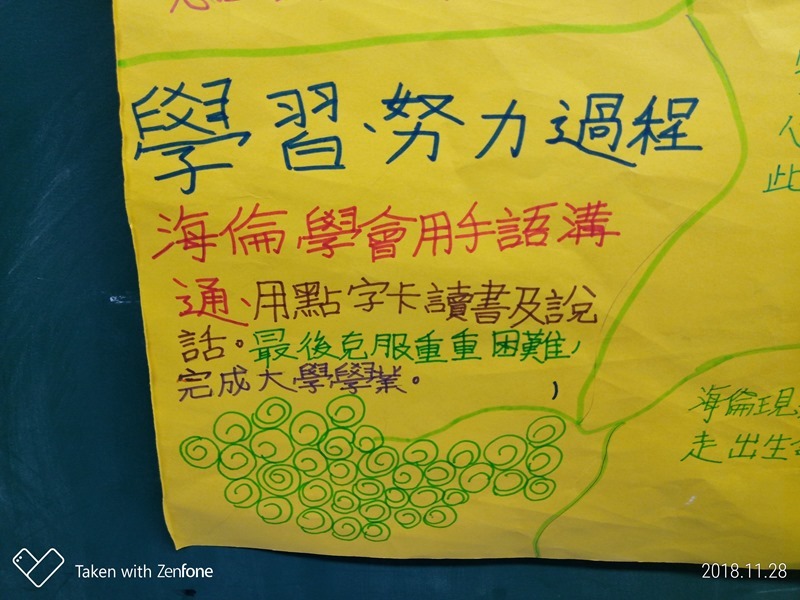 學習努力過程
海倫學會用手語溝
通、用點字卡讀書及說
話。最後克服重重困難,
完成大學學業。
此
海倫現
走出生
Taken with Zenfone
2018.11.28